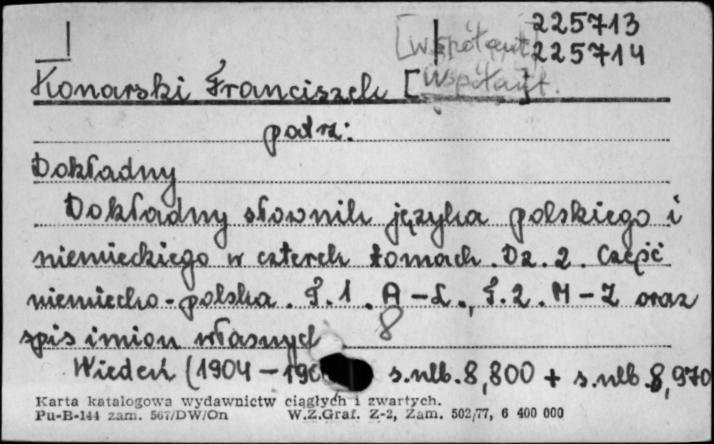 [współaut] 225713
225714
Konarski Franciszek [współaut.]
patrz:
Dokładny
Dokładny słownik języka polskiego i
niemieckiego w czterech tomach. Dz. 2. Część
niemiecko-polska. T. 1. A-L., T. 2. M-Z oraz
spis imion własnych 8
Wiedeń (1904-190 s. nlb. 8, 800 + s. nlb. 8, 970
Karta katalogowa wydawnictw ciągłych i zwartych.
Pu-B-144 zam. 567/DW/On W.Z.Graf. Z-2, Zam. 502/77, 6 400 000